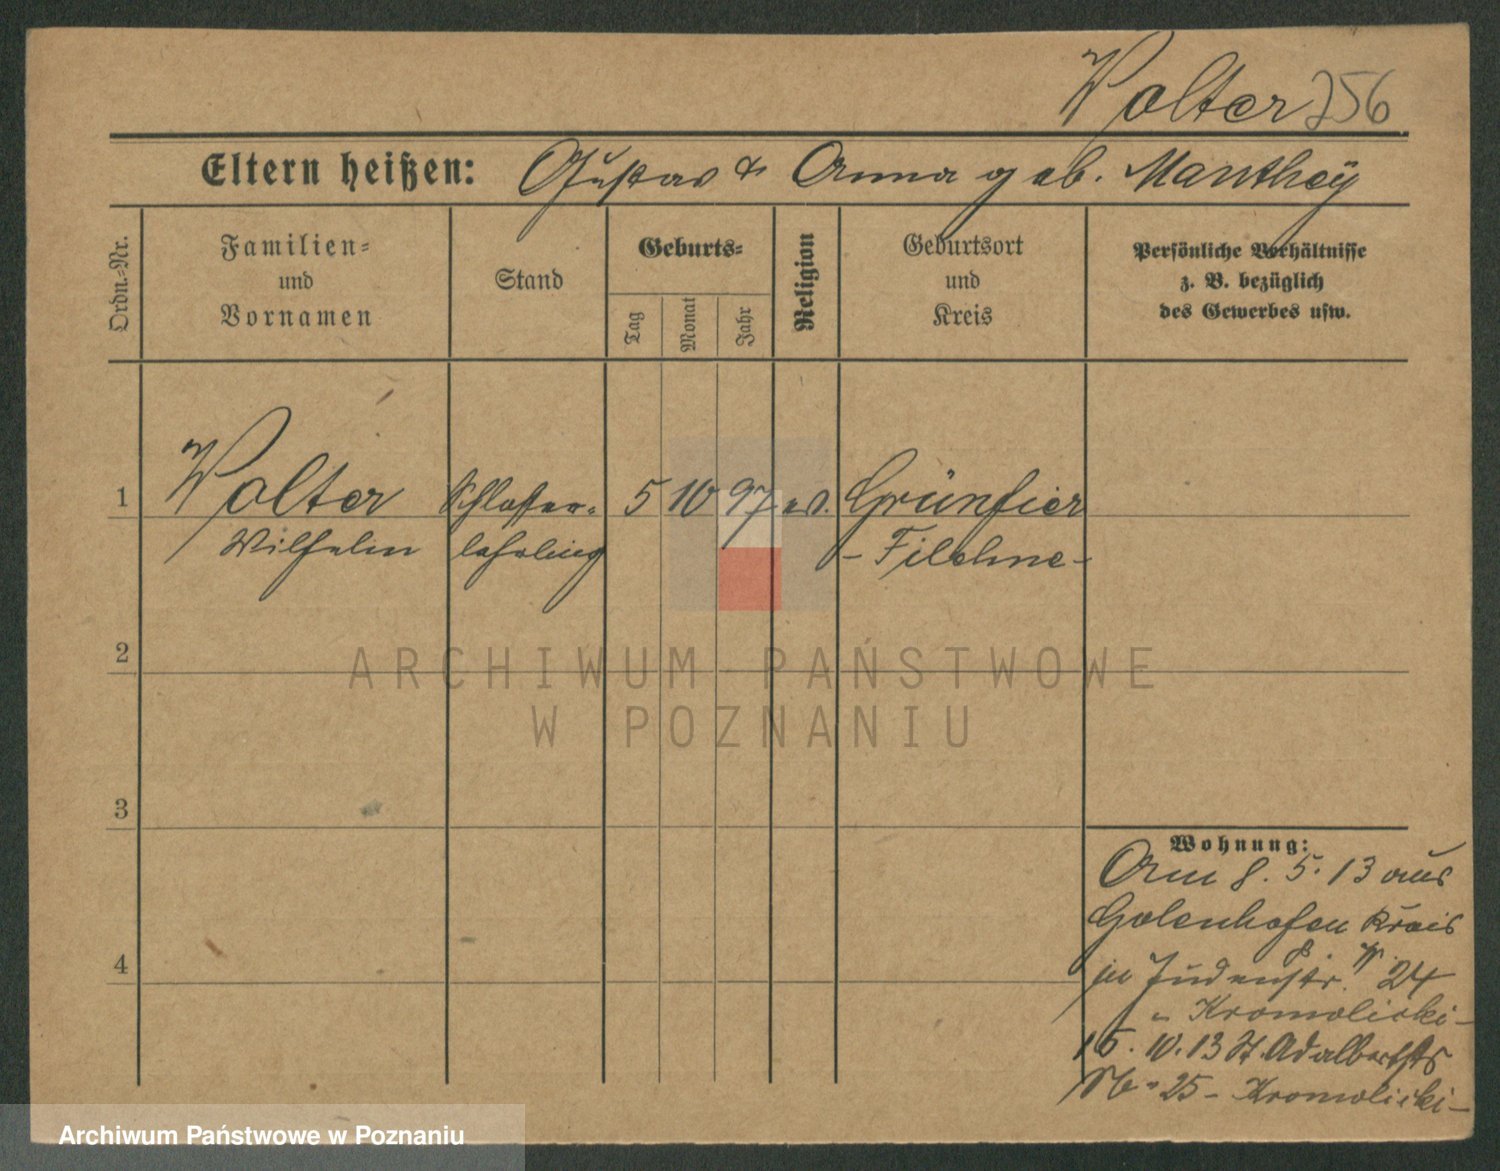 Wolter 256
Eltern heißen: Gustav & Anna geb. Manthey
Ordn.-Nr.
Familien-
und
Vornamen
Stand
Geburts-
Tag
Monat
Jahr
Religion
Geburtsort
und
Kreis
Persönliche Verhältnisse
z. B. bezüglich
des Gewerbes usw.
1 Wolter Schlosser- 5 10 97 ev. Grünfier
Wilhelm lehrling - Filehne -
2
ARCHIWUM PAŃSTWOWE
W POZNANIU
3
Wohnung:
Am 8. 5. 13 aus
Golenhofen Kreis
P. W.
in Judenstr. 24
" Kromolicki -
15. 10. 13 St. Adalbertstr
No 25 - Kromolicki -
4
Archiwum Państwowe w Poznaniu